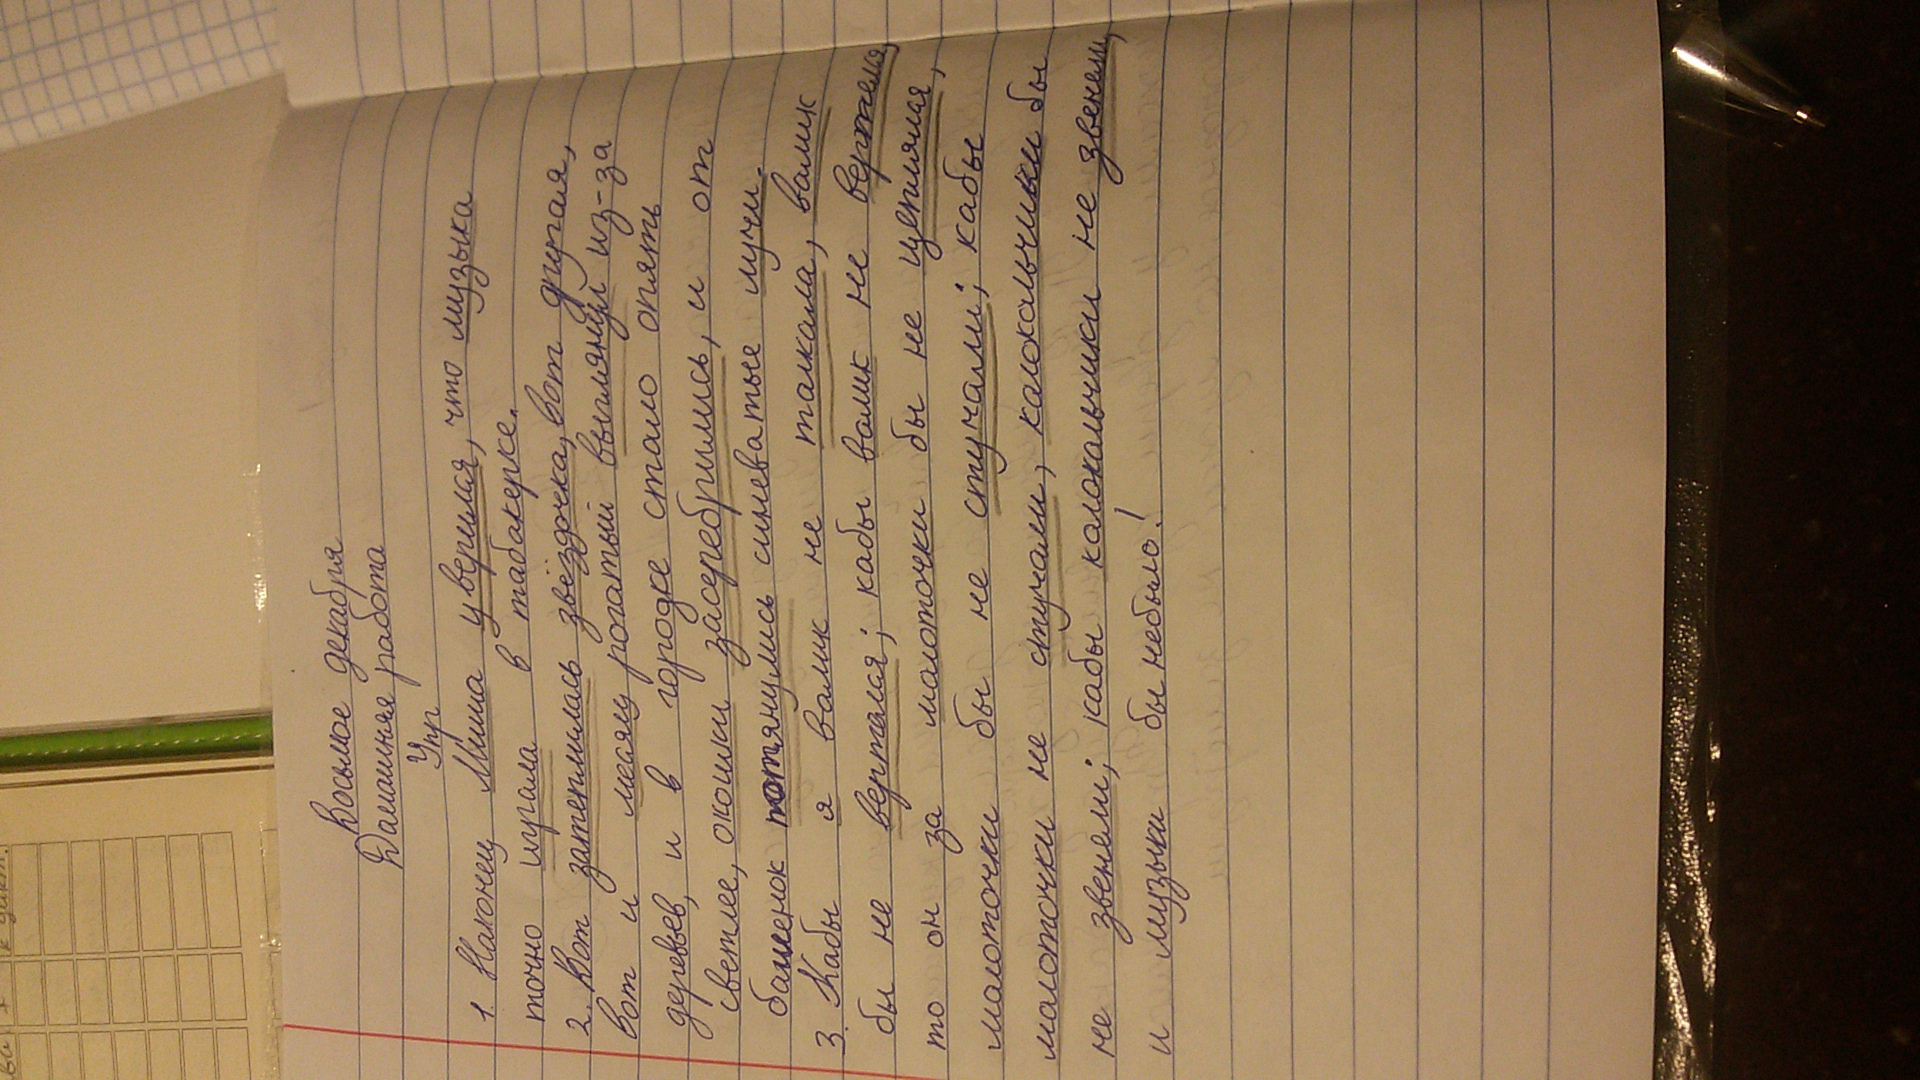 Восьмое декабря
Дамашняя работа
Упр
1. Наконец Миша уверился, что музыка
точно играла в табакерке.
2. Вот затеплилась звёздочка, вот другая,
вот и месяц рогатый выглянул из-за
деревьев, и в городке стало опять
светлее, окошки засеребрились, и от
башенок потянулись синеватые лучи.
3. Кабы я валик не толкала, валик
бы не вертелся; кабы валик не вертелся,
то он за молоточки бы не цеплялся,
молоточки бы не стучали; кабы
молоточки не стучали, колокольчики бы
не звенели; кабы колокольчики не звенели,
и музыки бы небыло!